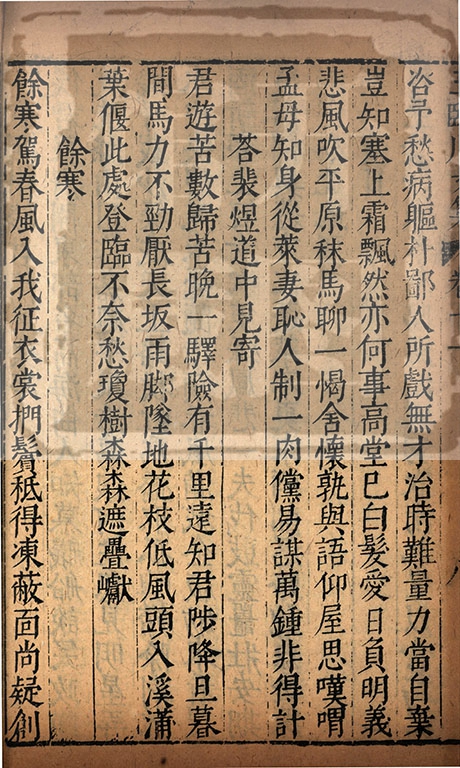 咨予愁病軀朴鄙人所戲無才治時難量力當自棄
豈知塞上霜飄然亦何事高堂已白髮愛日負明義
悲風吹平原秣馬聊一愒舍懷孰與語仰屋思嘆喟
孟母知身從萊妻恥人制一肉儻易謀萬鍾非得計
荅裴煜道中見寄
君遊苦數歸苦晚一驛險有千里遠知君陟降旦暮
間馬力不勁厭長坂雨脚墜地花枝低風頭入溪蒲
葉偃此處登臨不奈愁瓊樹森森遮疊巘
餘寒
餘寒駕春風入我征衣裳捫鬢秪得凍蔽面尚疑創